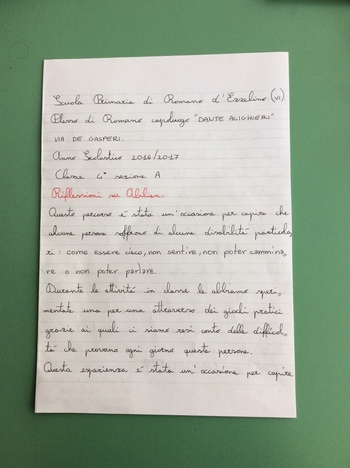 Scuola Primaria di Romano d'Ezzelino (VI).
Plesso di Romano capoluogo "DANTE ALIGHIERI"
VIA DE GASPERI.
Anno Scolastico 2016/2017
Classe 4° sezione A
Riflessioni su Abilian.
Questo percorso è stato un'occasione per capire che
alcune persone soffrono di alcune disabilità particola,
ri: come essere cieco, non sentire, non poter cammina,
re o non poter parlare.
Durante le attività in classe le abbiamo speri,
mentate una per una attraverso dei giochi pratici
grazie ai quali ci siamo resi conto delle difficol,
tà che provano ogni giorno queste persone.
Questa esperienza è stata un'occasione per capire